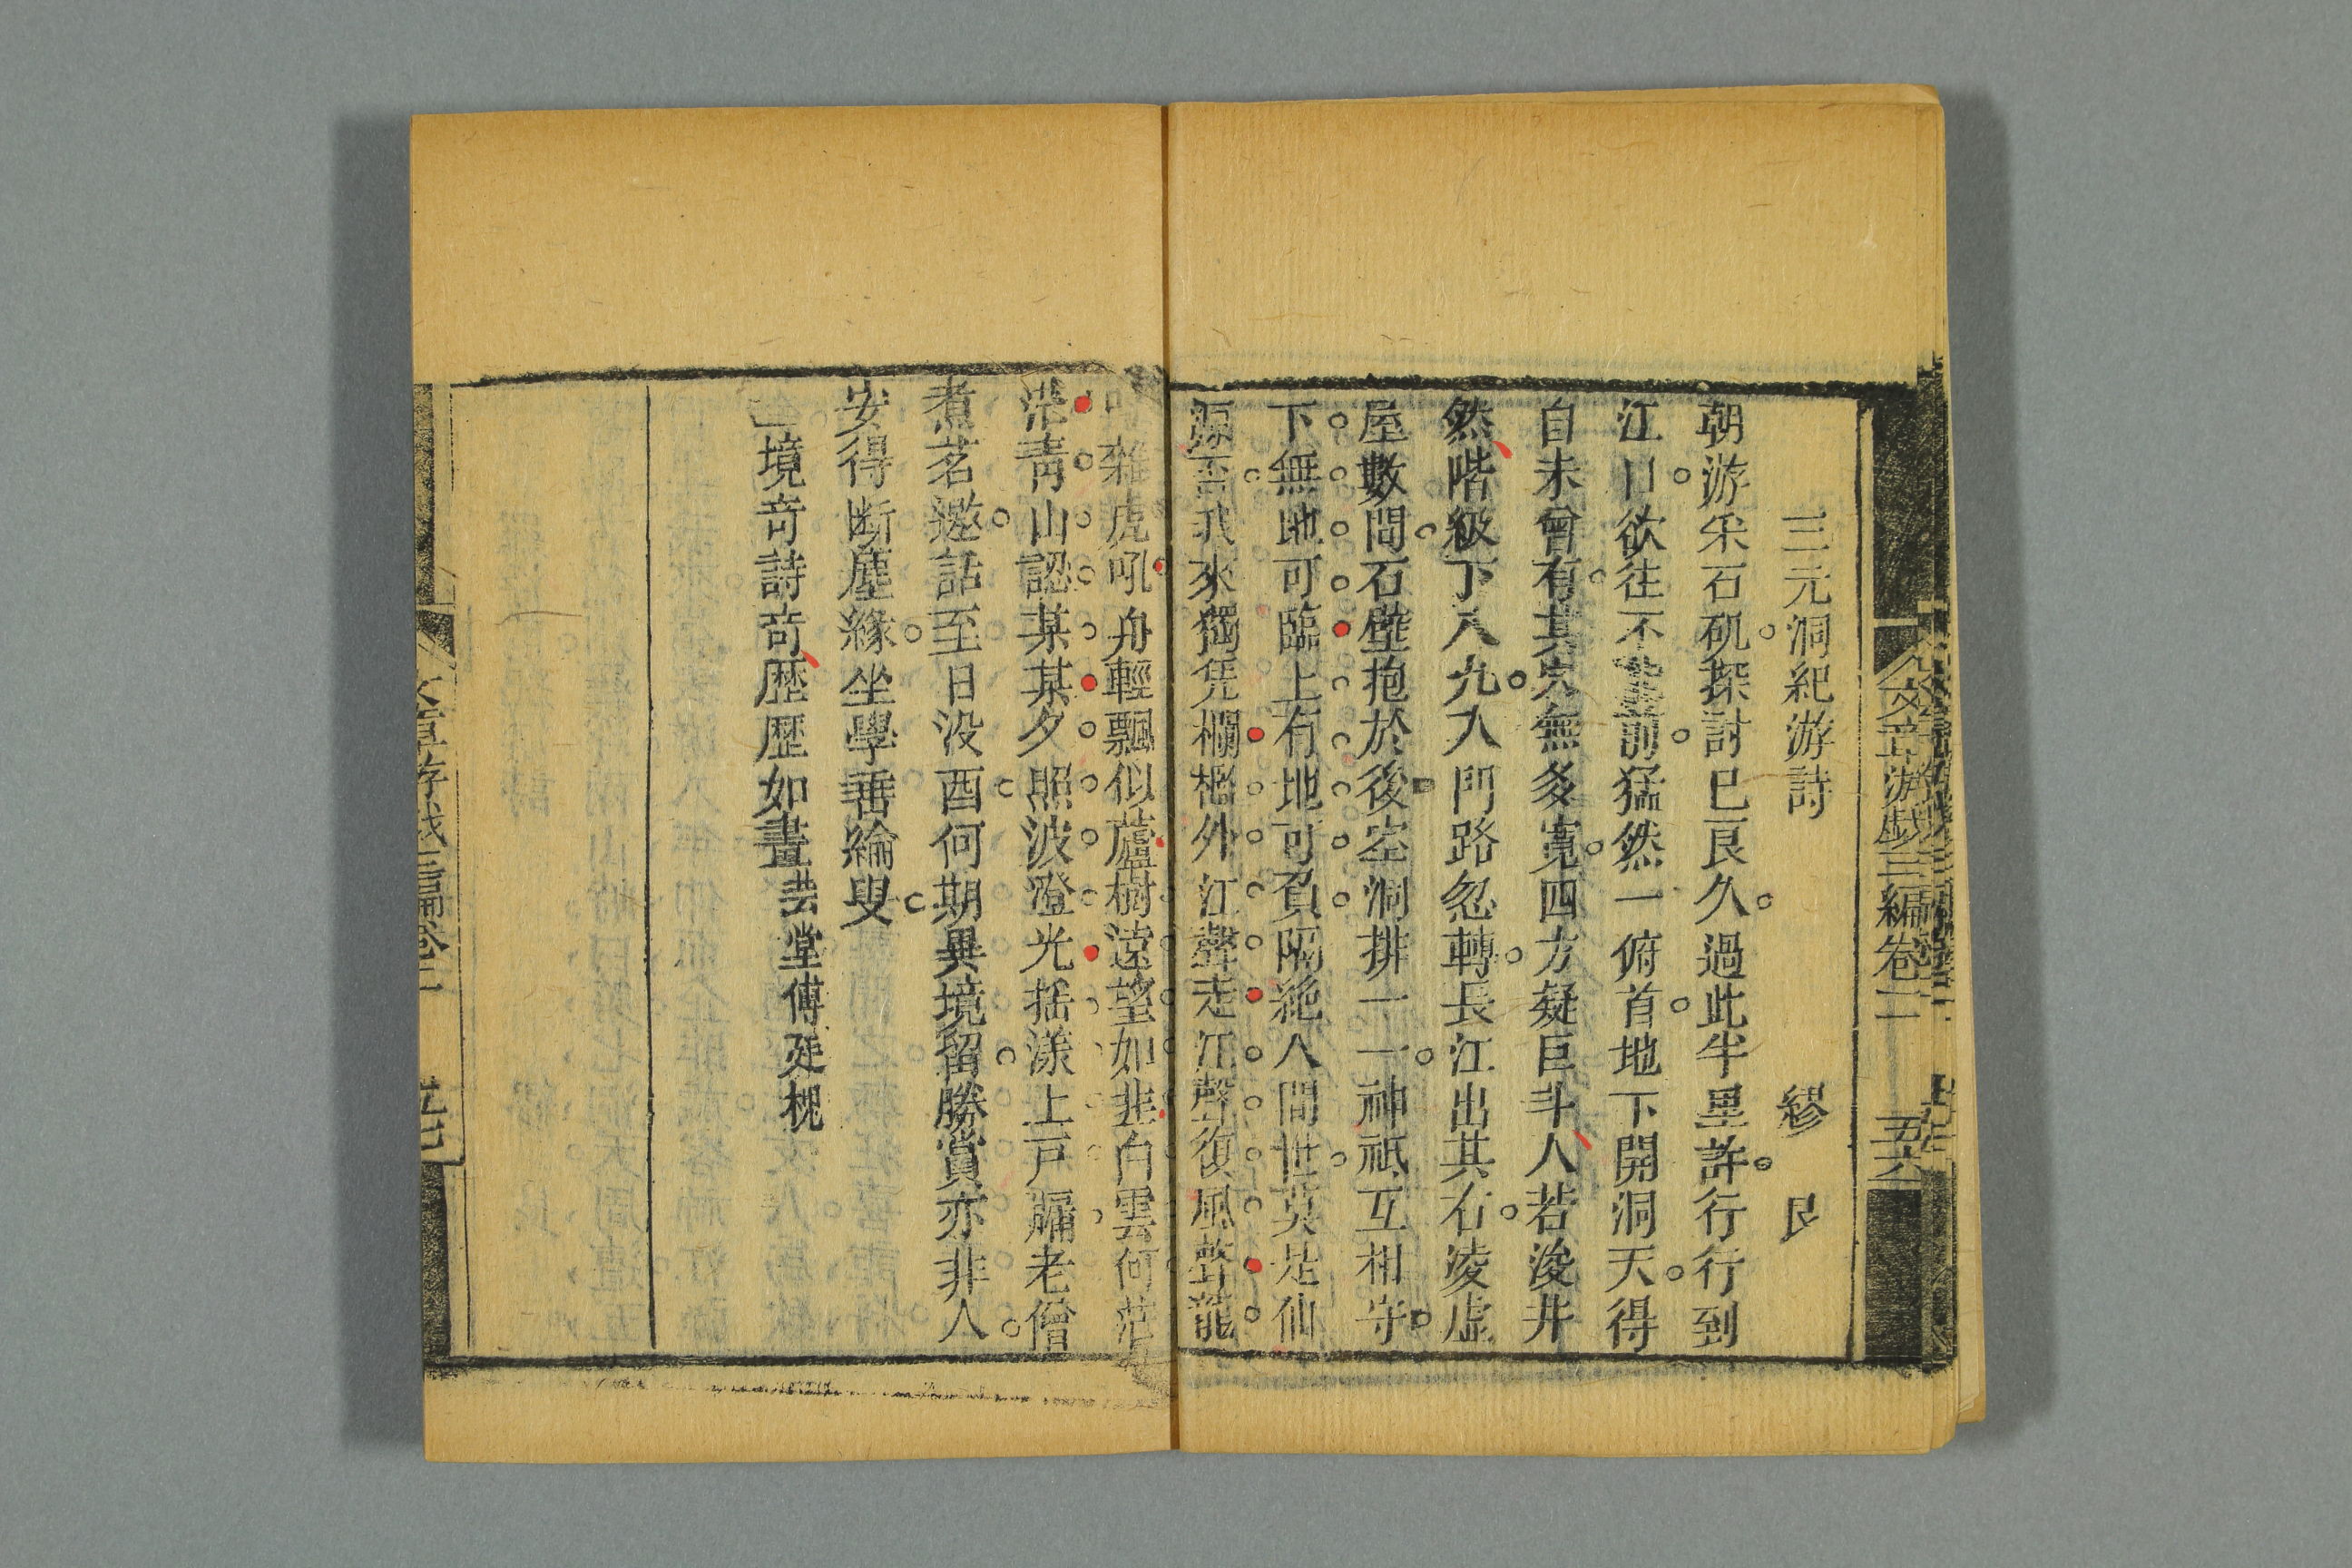 文章游戲三編卷二 五六
三元洞紀游詩 繆 艮
朝游采石磯探討已良久過此半里許行行到
江口欲往不前猛然一俯首地下開洞天得
自未曾有其穴無多寬四方疑巨斗人若浚井
然階級下八九入門路忽轉長江出其右凌虛
屋數間石壁抱於後空洞排一一神祇互相守
下無地可臨上有地可負隔絕人間世莫是仙
源否我來獨凭欄檻外江聲走江聲復風聲龍
吟雜虎吼舟輕飄似蘆樹遠望如韭白雲何茫
茫青山認某某夕照波澄光搖漾上戸牖老僧
煮茗邀話至日沒酉何期異境留勝賞亦非人
安得断塵緣坐學垂綸叟
境奇詩奇歷歷如畫 芸堂傅廷桄
文章游戲三編卷二 五七